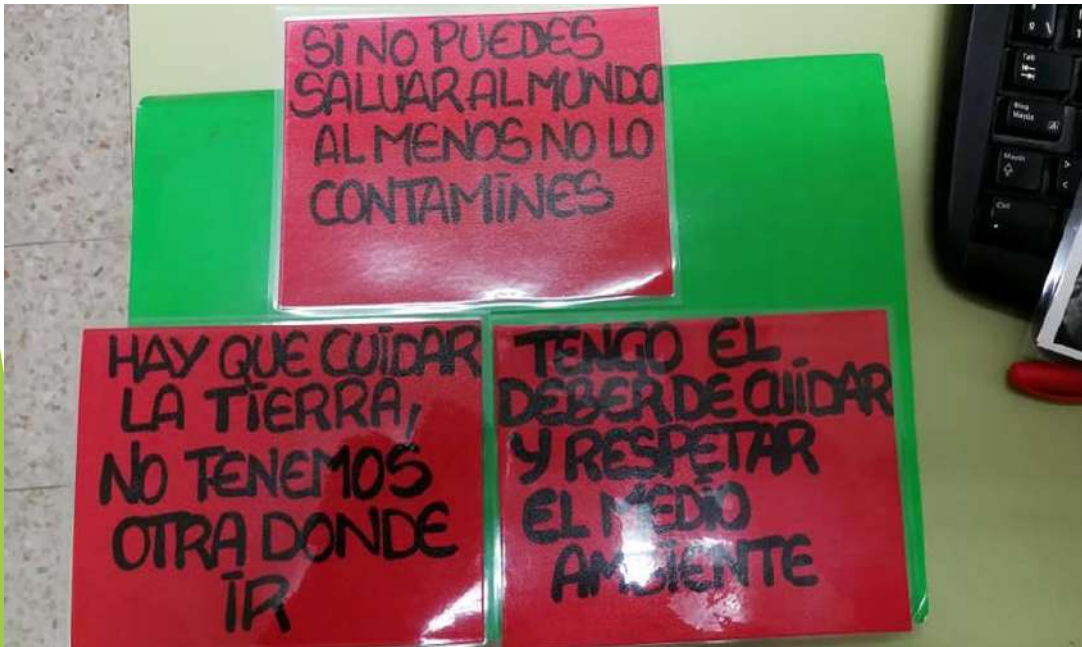 SI NO PUEDES
SALVAR AL MUNDO
AL MENOS NO LO
CONTAMINES
HAY QUE CUIDAR
LA TIERRA,
NO TENEMOS
OTRA DONDE
IR
TENGO EL
DEBER DE CUIDAR
Y RESPETAR
EL MEDIO
AMBIENTE
Tab
Bloq
Mayús
Mayús
Ctrl